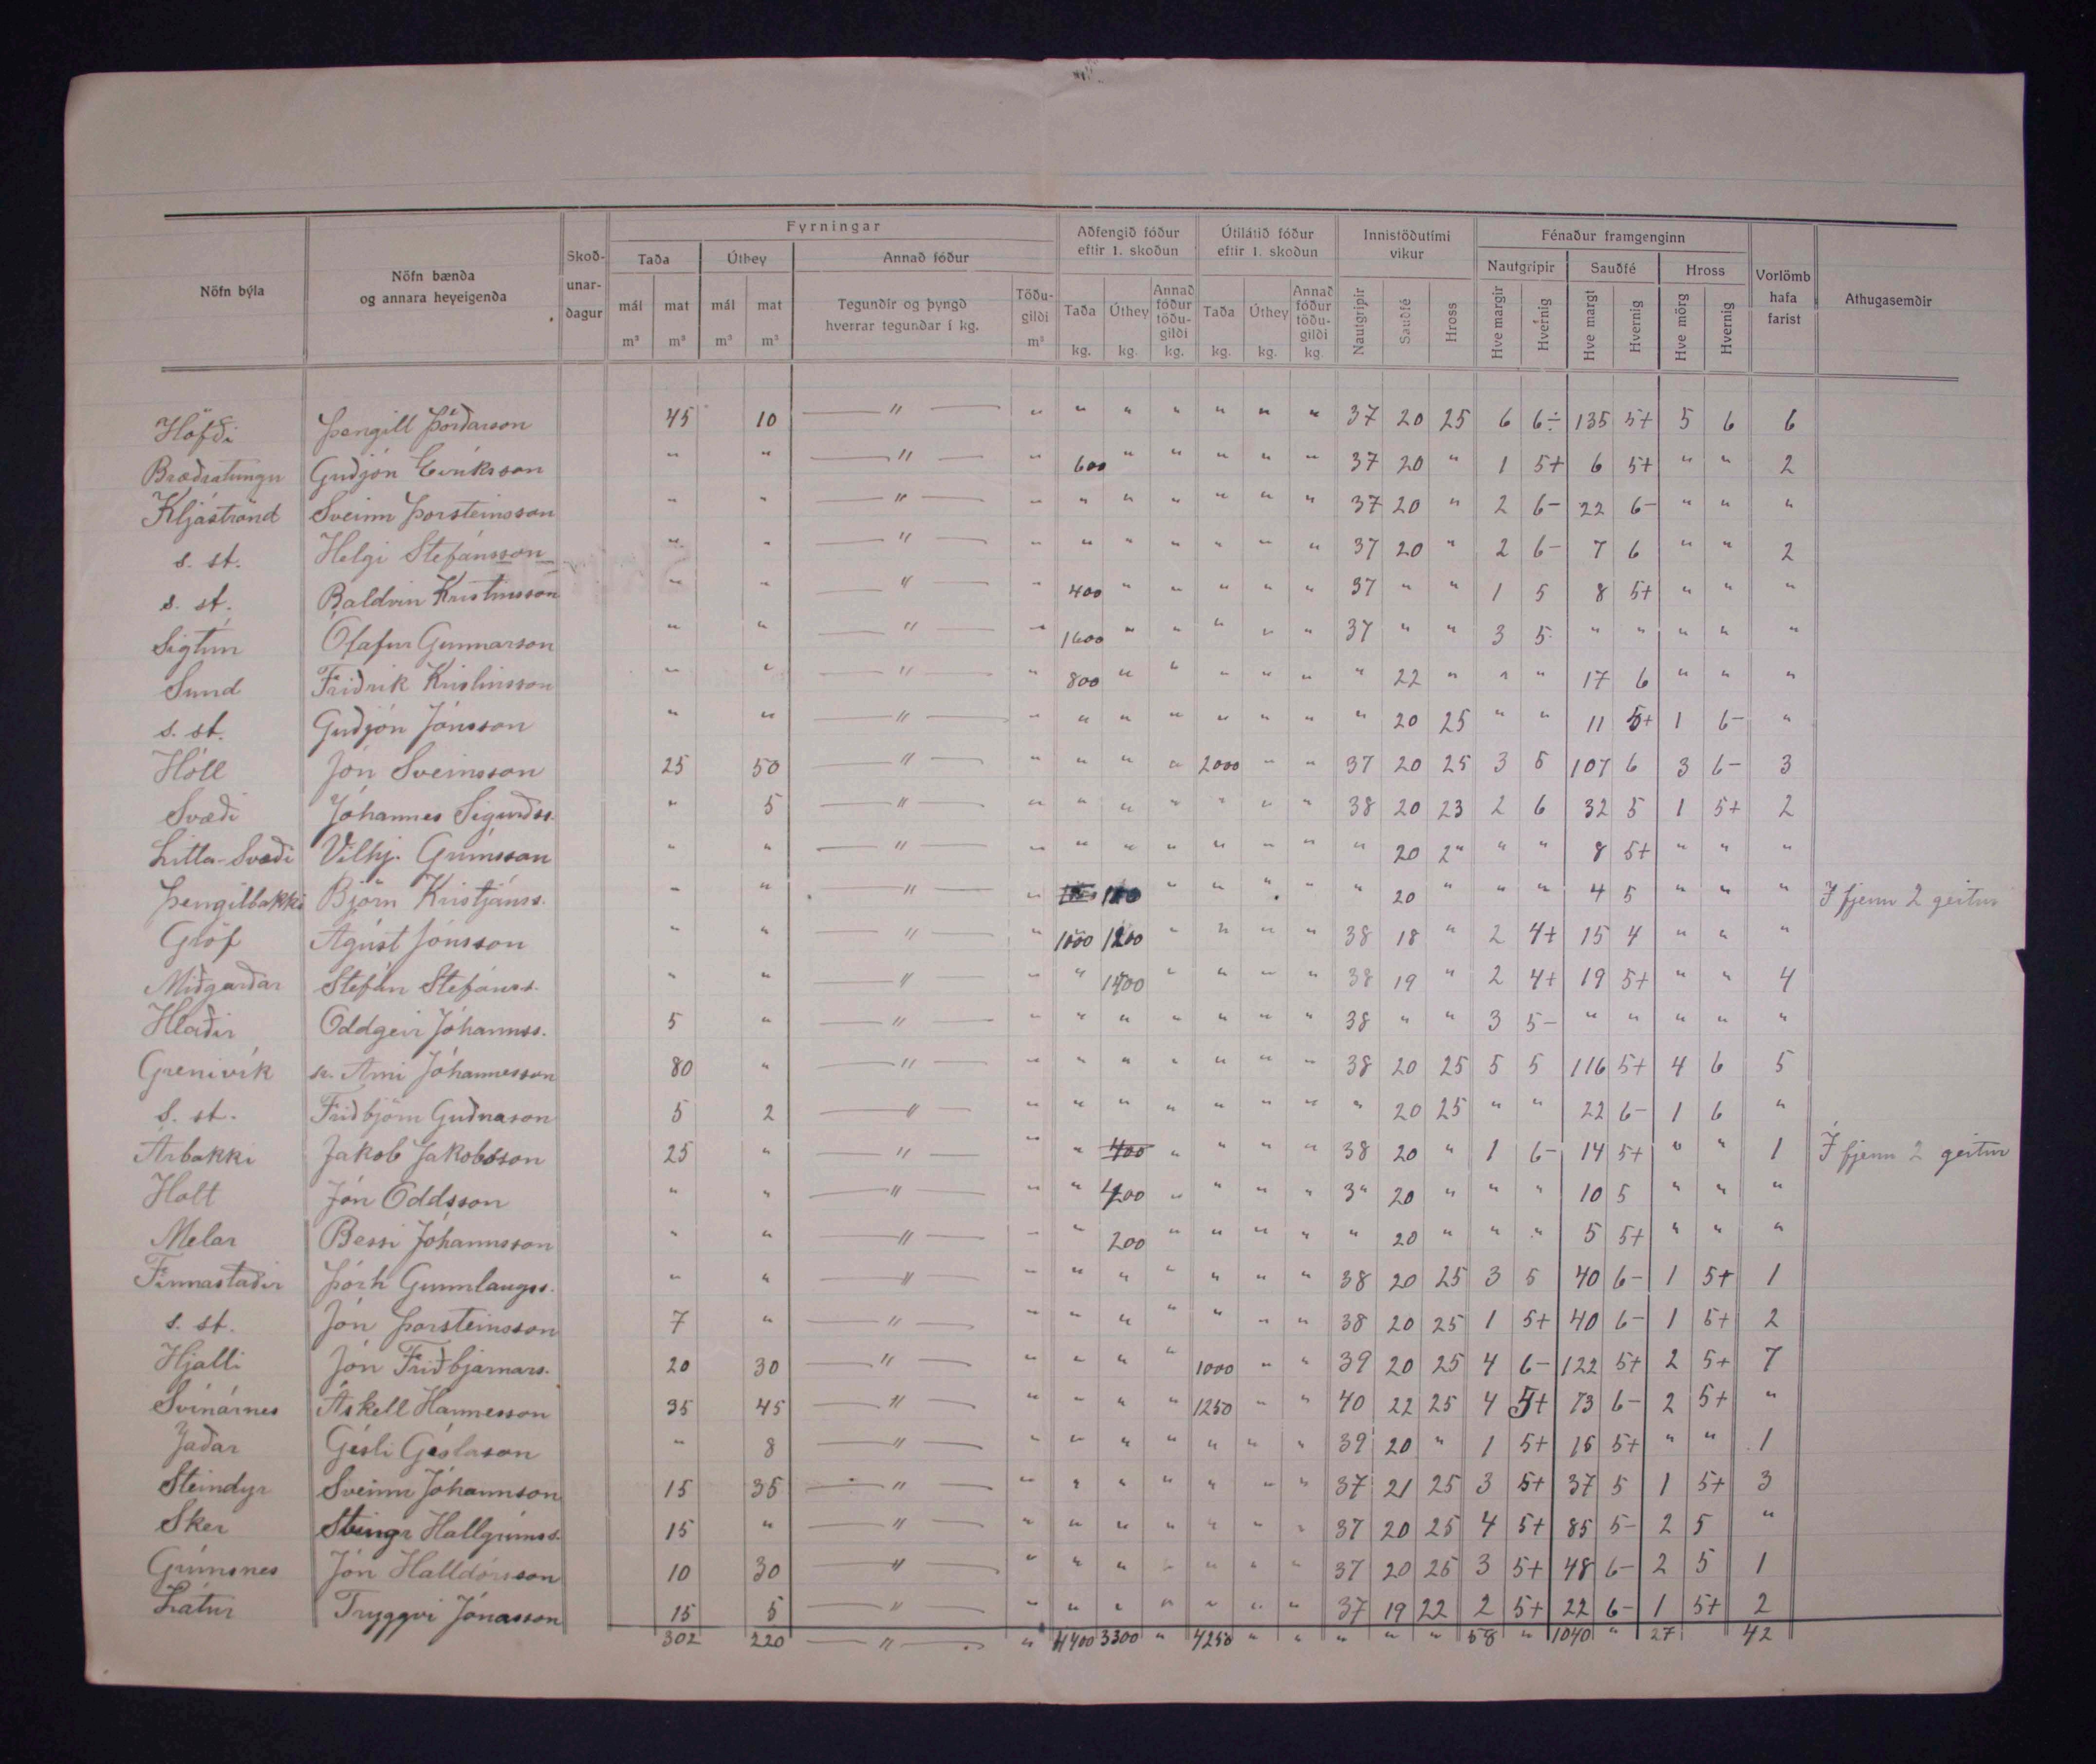 Fyrningar
Aðfengið fóður eftir 1. skoðun
Útilátið fóður eftir 1. skoðun
Innistöðutími vikur
Fénaður framgenginn
Nöfn býla
Nöfn bænda og annara heyeigenda
Skoðunardagur
Taða
Úthey
Annað fóður
Nautgripir
Sauðfé
Hross
Vorlömb hafa farist
Athugasemdir
mál m³
mat m³
mál m³
mat m³
Tegundir og þyngd hverrar tegundar í kg.
Töðugildi m³
Taða kg.
Úthey kg.
Annað fóður töðugildi kg.
Taða kg.
Úthey kg.
Annað fóður töðugildi kg.
Nautgripir
Sauðfé
Hross
Hve margir
Hvernig
Hve margt
Hvernig
Hve mörg
Hvernig
Höfði Þengill Þórðarson 45 10 — " — " " " " " " " 37 20 25 6 6÷ 135 5+ 5 6 6
Bræðratunga Guðjón Eiríksson " " — " — " 600 " " " " " 37 20 " 1 5+ 6 5+ " " 2
Kljáströnd Sveinn Þorsteinsson " " — " — " " " " " " " 37 20 " 2 6- 22 6- " " "
s. st. Helgi Stefánsson " " — " — " " " " " " " 37 20 " 2 6- 7 6 " " 2
s. st. Baldvin Kristinsson " " — " — " 400 " " " " " 37 " " 1 5 8 5+ " " "
Sigtún Ólafur Gunnarson " " — " — " 1600 " " " " " 37 " " 3 5 " " " " "
Sund Friðrik Kristinsson " " — " — " 800 " " " " " " 22 " " " 17 6 " " "
s. st. Guðjón Jónsson " " — " — " " " " " " " " 20 25 " " 11 5+ 1 6- "
Hóll Jón Sveinsson 25 50 — " — " " " " 2000 " " 37 20 25 3 5 107 6 3 6- 3
Svæði Jóhannes Sigurðss. " 5 — " — " " " " " " " 38 20 23 2 6 32 5 1 5+ 2
Litla-Svæði Vilhj. Grímsson " " — " — " " " " " " " " 20 2" " " 8 5+ " " "
Þengilbakki Björn Kristjánss. " " — " — " 100 " " " " " 20 " " " 4 5 " " " Í fjenu 2 geitur
Gröf Ágúst Jónsson " " — " — " 1000 1200 " " " " 38 18 " 2 4+ 15 4 " " "
Miðgarðar Stefán Stefánss. " " — " — " " 1400 " " " " 38 19 " 2 4+ 19 5+ " " 4
Hlaðir Oddgeir Jóhannss. 5 " — " — " " " " " " " 38 " " 3 5- " " " " "
Grenivík sr. Árni Jóhannesson 80 " — " — " " " " " " " 38 20 25 5 5 116 5+ 4 6 5
s. st. Friðbjörn Guðnason 5 2 — " — " " " " " " " " 20 25 " " 22 6- 1 6 "
Árbakki Jakob Jakobsson 25 " — " — " " 400 " " " " 38 20 " 1 6- 14 5+ " " 1 Í fjenu 2 geitur
Holt Jón Oddsson " " — " — " " 400 " " " " 3" 20 " " " 10 5 " " "
Melar Bessi Jóhannsson " " — " — " " 200 " " " " " 20 " " " 5 5+ " " "
Finnastaðir Þórh Gunnlaugss. " " — " — " " " " " " " 38 20 25 3 5 40 6- 1 5+ 1
s. st. Jón Þorsteinsson 7 " — " — " " " " " " " 38 20 25 1 5+ 40 6- 1 5+ 2
Hjalli Jón Friðbjarnars. 20 30 — " — " " " " 1000 " " 39 20 25 4 6- 122 5+ 2 5+ 7
Svínárnes Áskell Hannesson 35 45 — " — " " " " 1250 " " 40 22 25 4 5+ 73 6- 2 5+ "
Jaðar Gísli Gíslason " 8 — " — " " " " " " " 39 20 " 1 5+ 15 5+ " " 1
Steindyr Sveinn Jóhannson 15 35 — " — " " " " " " " 37 21 25 3 5+ 37 5 1 5+ 3
Sker Steingr Hallgrímss. 15 " — " — " " " " " " " 37 20 25 4 5+ 85 5- 2 5 "
Grímsnes Jón Halldórsson 10 30 — " — " " " " " " " 37 20 25 3 5+ 48 6- 2 5 1
Látur Tryggvi Jónasson 15 5 — " — " " " " " " " 37 19 22 2 5+ 22 6- 1 5+ 2
302 220 — " — " 4400 3300 " 4250 " " " " " 58 " 1040 " 27 42